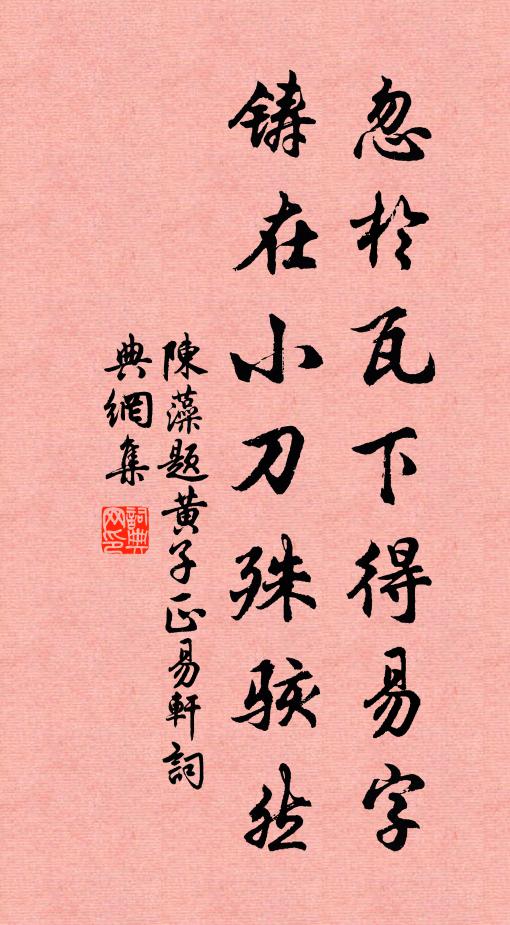 忽於瓦下得易字
鑄在小刀殊駭然
陳藻題黃子正易軒詞
典網集
詞典
网印